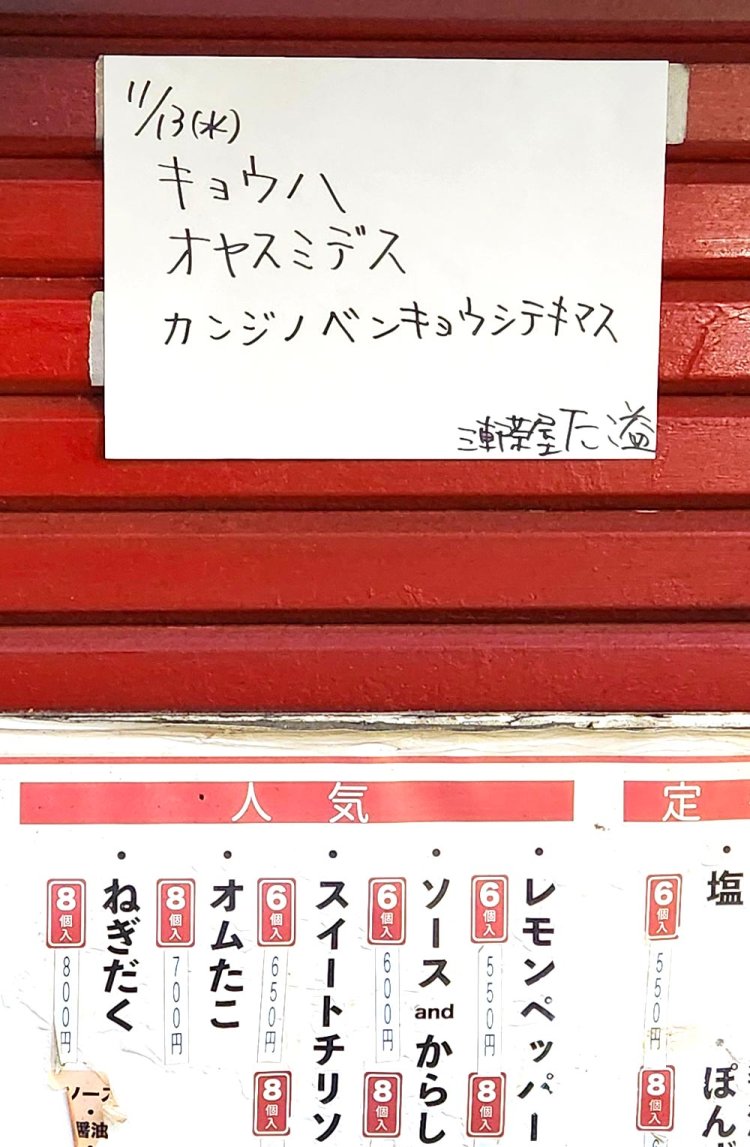 11/13(水)
キョウハ
オヤスミデス
カンジノベンキョウシテキマス
三軒茶屋 た溢
人気
定
・レモンペッパー
6個入 550円
8個入
・ソースandからし
6個入 600円
8個入
・スイートチリソ
6個入 650円
8個入
・オムたこ
8個入 700円
・ねぎだく
8個入 800円
ソース
・
醤油
・塩
6個入 550円
8個入
・ぽん